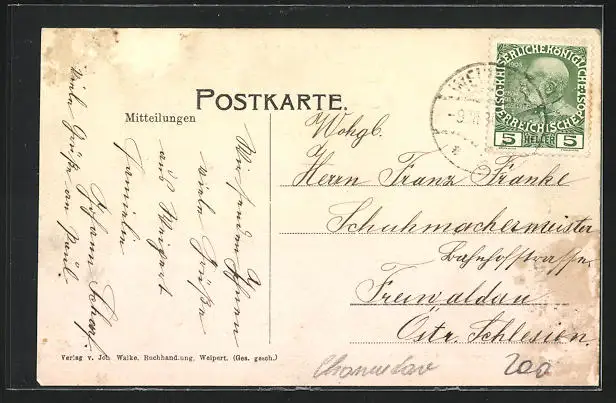 POSTKARTE.
Mitteilungen
Wir senden Ihnen
viele Grüße
aus Weipert
Familie
Johann Scharf.
Viele Grüße an Paul.
KAISERLICHE KÖNIGLICHE ÖSTERREICHISCHE POST
5 HELLER 5
Wohgb.
Herrn Franz Franke
Schuhmachermeister
Bahnhofstrasse
Freiwaldau
Östr. Schlesien.
Verlag v. Joh. Walke, Buchhandlung, Weipert. (Ges. gesch.)
200